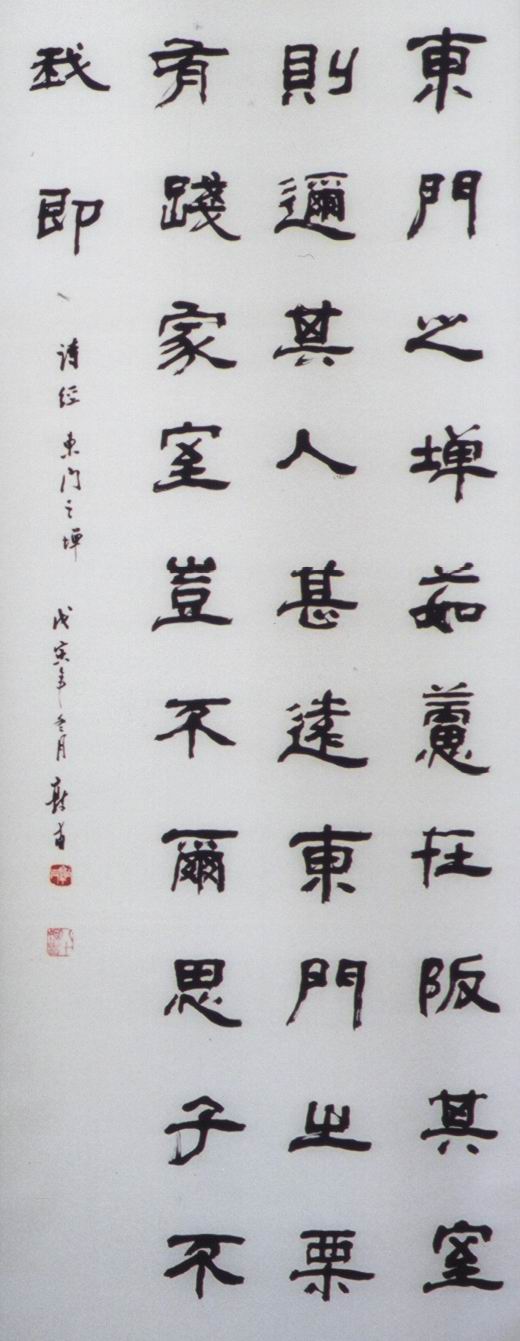 東門之墠茹藘在阪其室
則邇其人甚遠東門之栗
有踐家室豈不爾思子不
我即
诗经 東门之墠 戊寅年 月